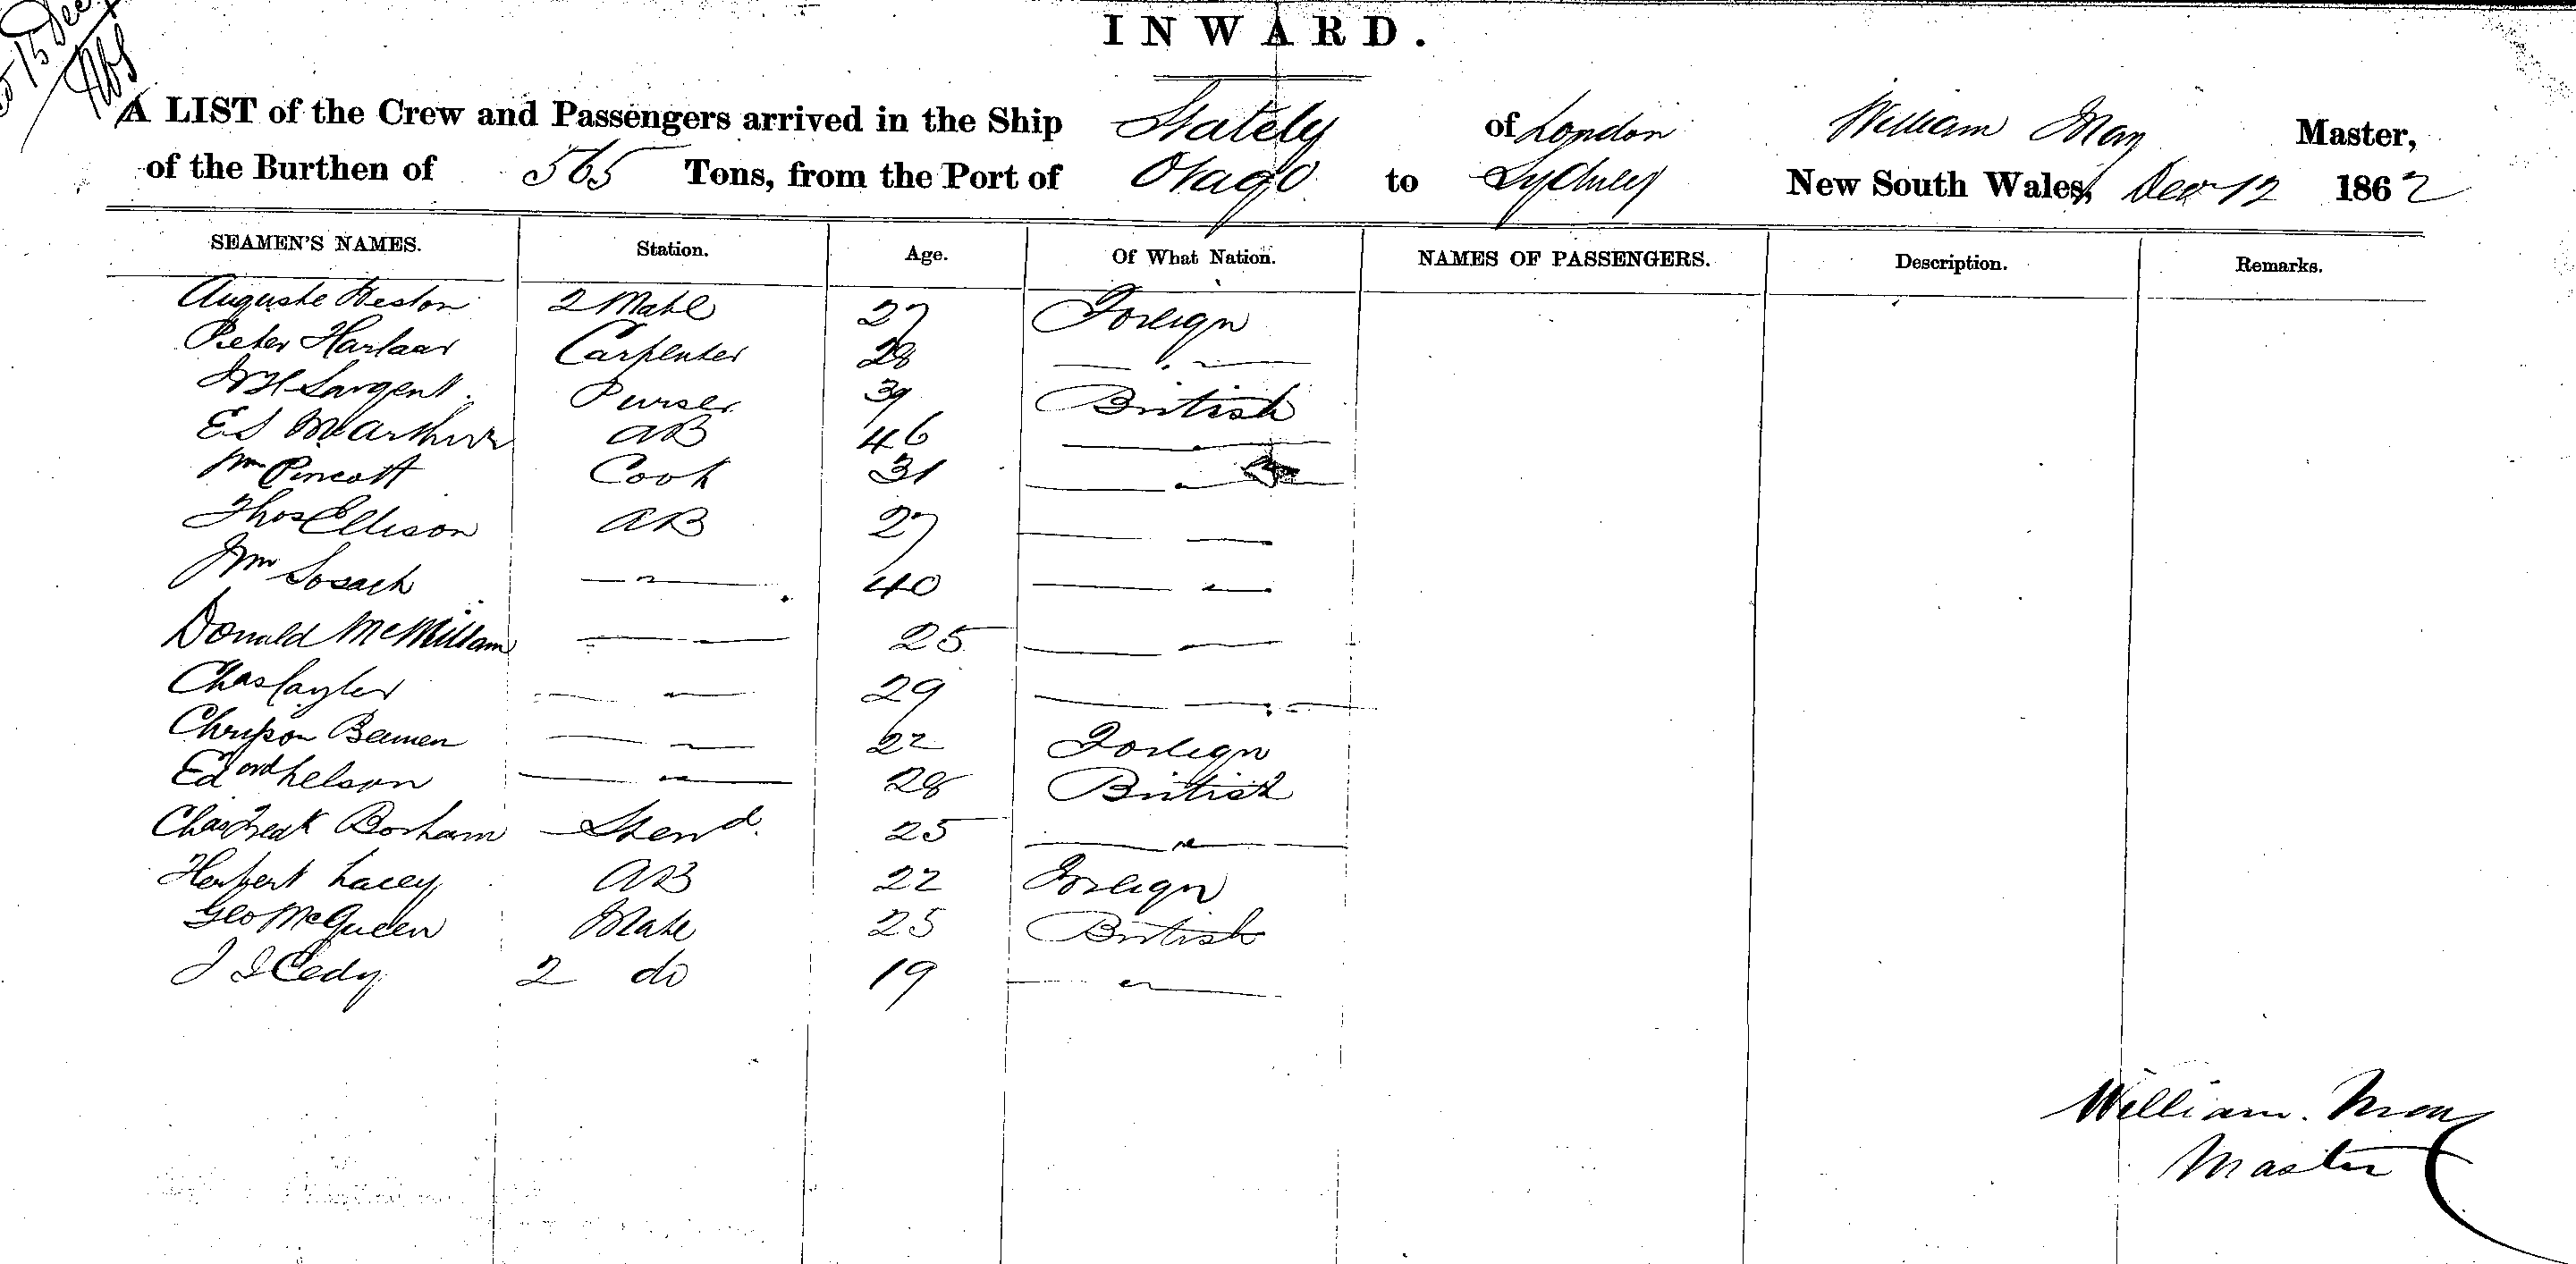 15 Dec
INWARD.
A LIST of the Crew and Passengers arrived in the Ship Stately of London William May Master,
of the Burthen of 565 Tons, from the Port of Otago to Sydney New South Wales, Decr 12 1862
SEAMEN'S NAMES. Station. Age. Of What Nation. NAMES OF PASSENGERS. Description. Remarks.
Auguste Heston 2 Mate 27 Foreign
Pieter Harlaar Carpenter 28 — " —
W H Sargent. Purser 39 British
E S McArthur AB 46 — " —
Wm Pincott Cook 31 — " —
Thos Ellison AB 27 — " —
Wm — " — 40 — " —
Donald McMillam — " — 25 — " —
Chas Cayler — " — 29 — " —
Beemen — " — 22 Foreign
Edord Nelson — " — 28 British
Chas Borham Stewd. 25 — " —
Herbert Lacey AB 22 Foreign
Geo McQueen Mate 25 British
J Cedy 2 do 19 — " —
William. May
Master